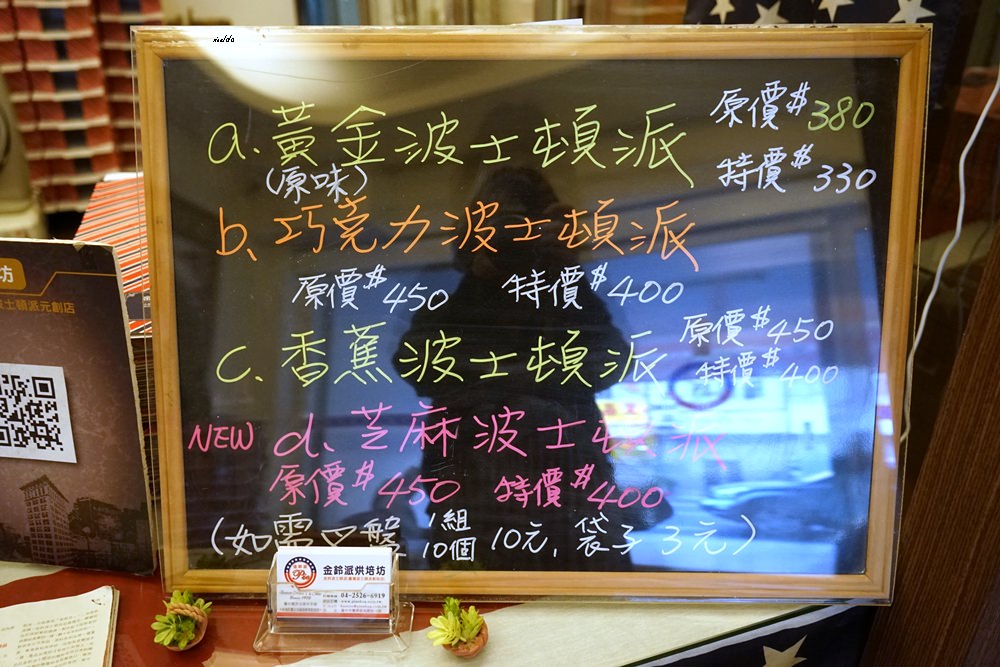 a. 黃金波士頓派 原價$380
(原味) 特價$330
b、巧克力波士頓派
原價$450 特價$400
c. 香蕉波士頓派 原價$450
特價$400
NEW d、芝麻波士頓派
原價$450 特價$400
(如需叉盤 1組10個 10元, 袋子3元)
金鈴派烘焙坊
04-2526-6919
坊
士頓派元創店